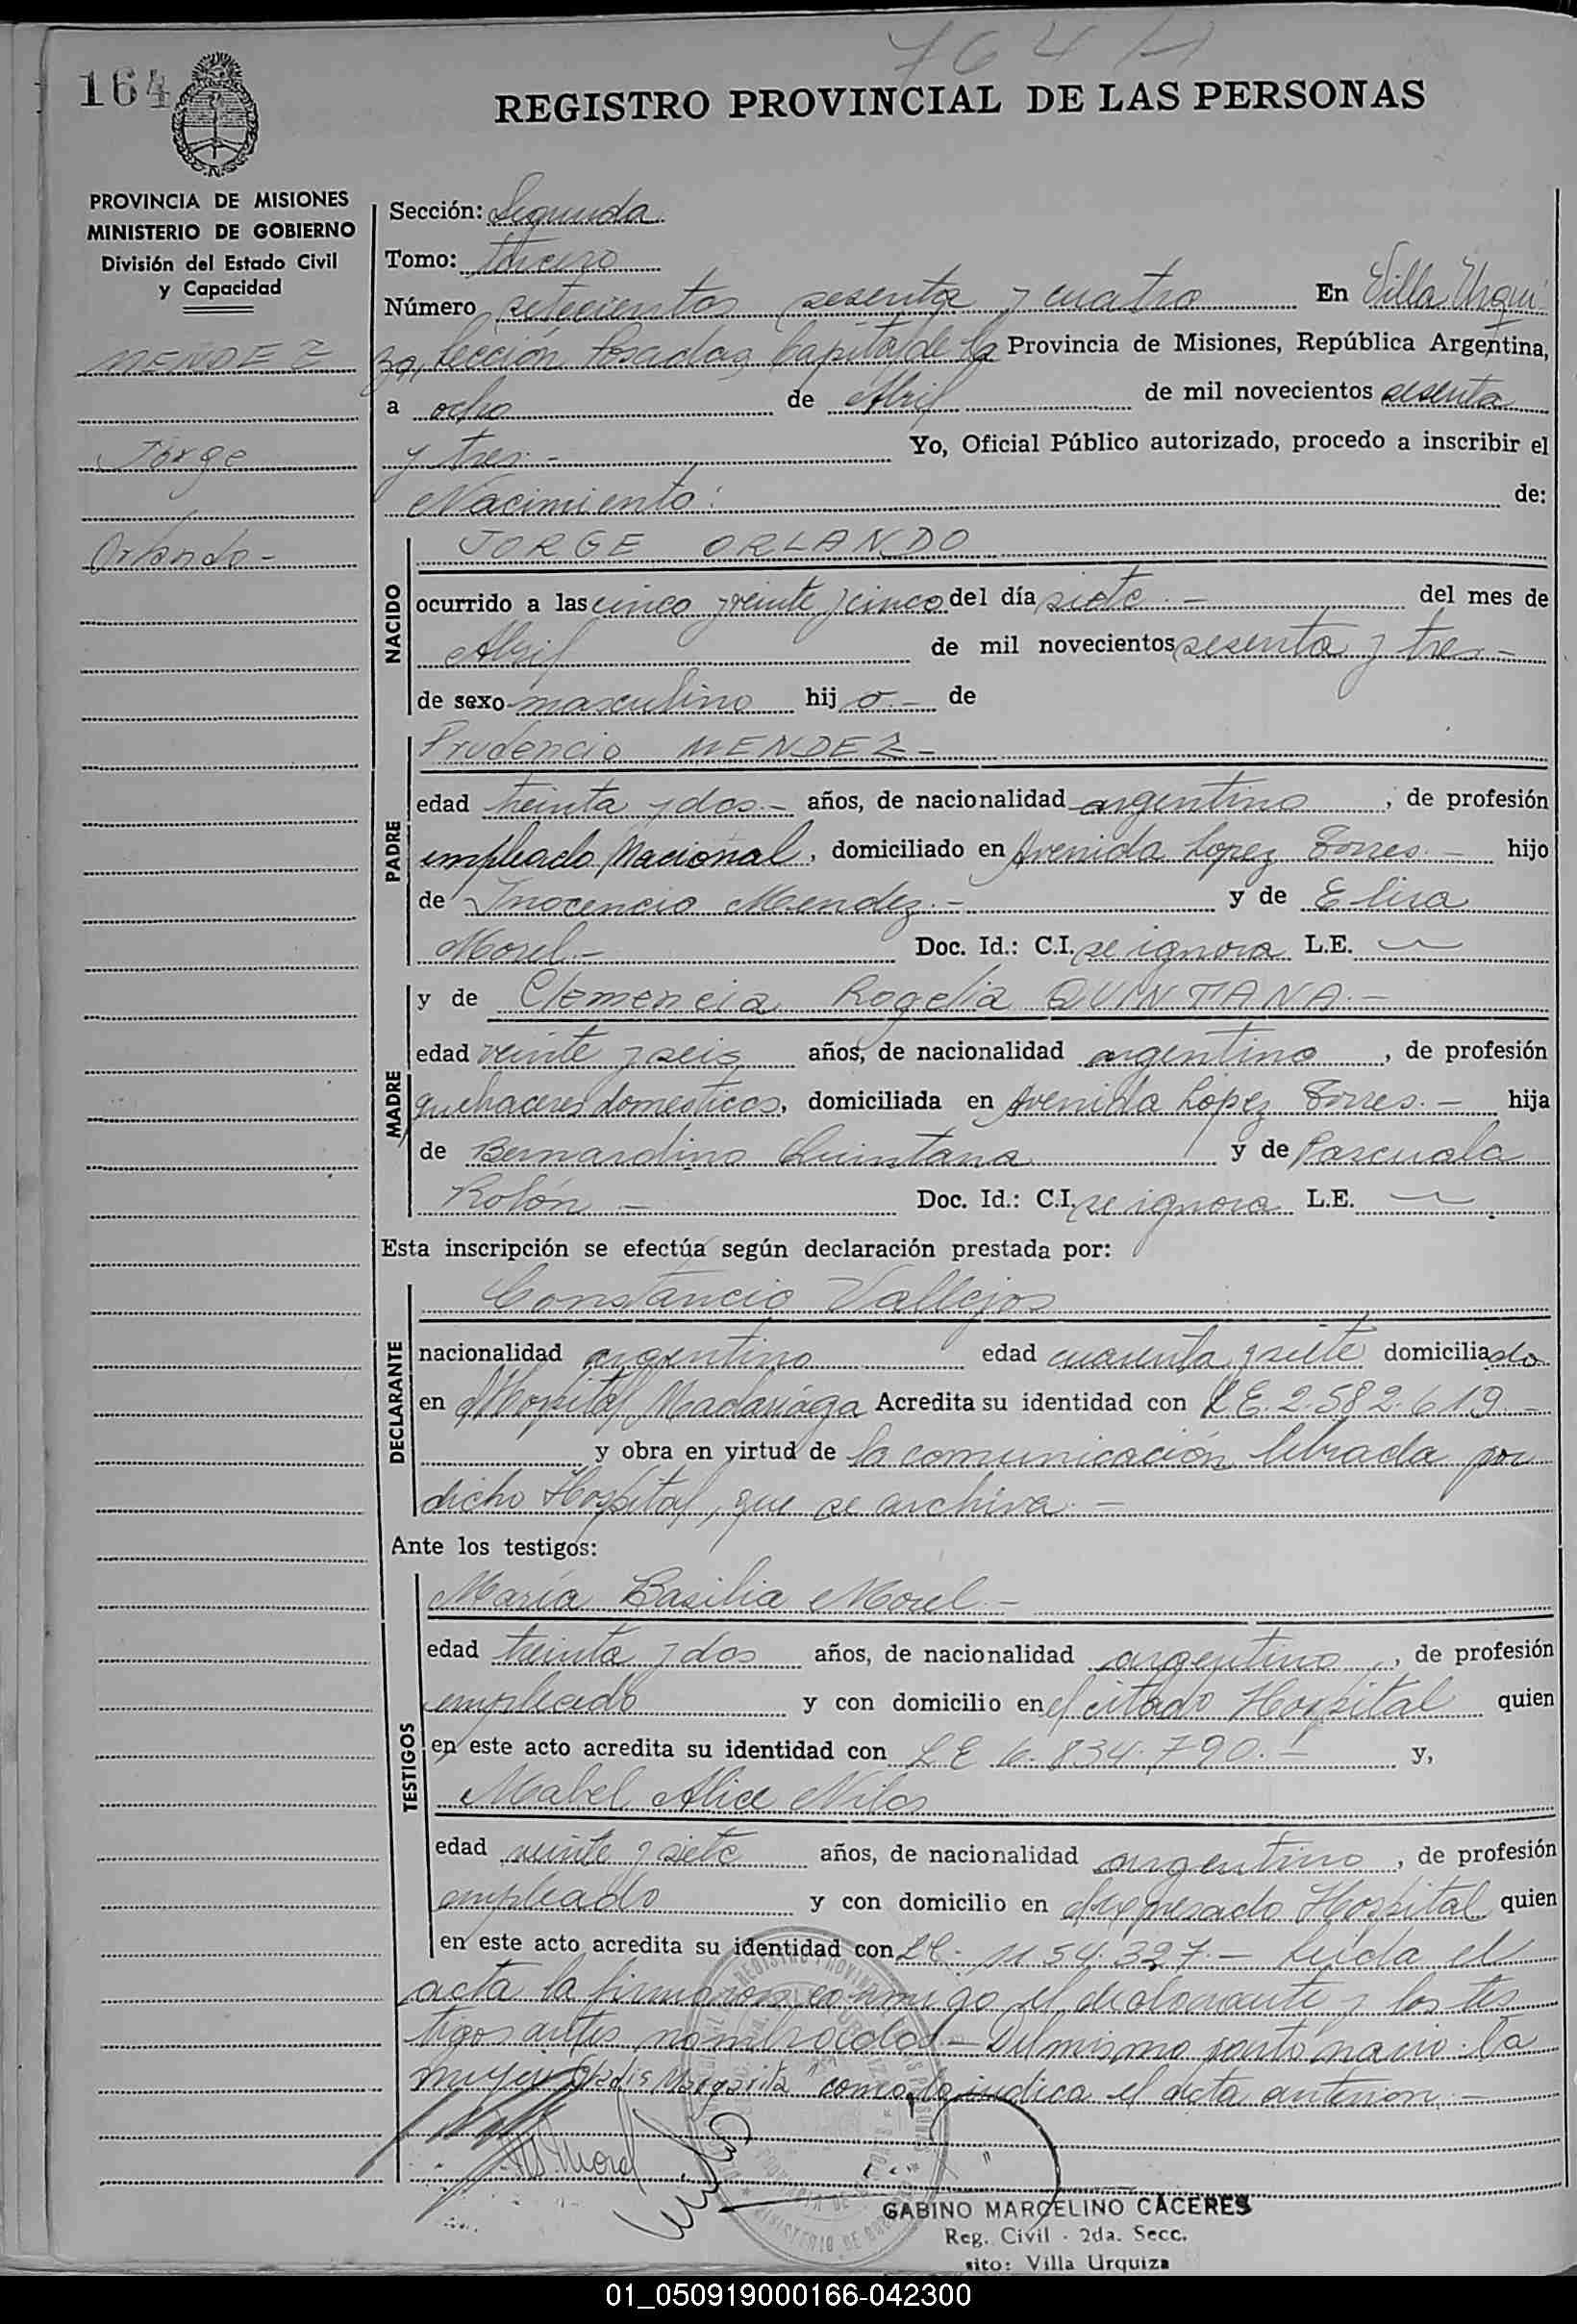 764
164
REGISTRO PROVINCIAL DE LAS PERSONAS
PROVINCIA DE MISIONES
MINISTERIO DE GOBIERNO
División del Estado Civil
y Capacidad
MENDEZ
Jorge
Orlando -
Sección: Segunda
Tomo: tercero
Número setecientos sesenta y cuatro En Villa Urqui
za, Sección Posadas, Capital de la Provincia de Misiones, República Argentina,
a ocho de Abril de mil novecientos sesenta
y tres.- Yo, Oficial Público autorizado, procedo a inscribir el
Nacimiento: de:
NACIDO
JORGE ORLANDO
ocurrido a las cinco y veinte y cinco del día siete.- del mes de
Abril de mil novecientos sesenta y tres-
de sexo masculino hijo.- de
PADRE
Prudencio MENDEZ-
edad treinta y dos.- años, de nacionalidad argentino, de profesión
empleado Nacional, domiciliado en Avenida Lopez Torres.- hijo
de Inocencio Mendez.- y de Elisa
Morel.- Doc. Id.: C.I. se ignora L.E.
MADRE
y de Clemencia Rogelia QUINTANA.-
edad veinte y seis años, de nacionalidad argentino, de profesión
quehaceres domesticos, domiciliada en Avenida Lopez Torres.- hija
de Bernardino Quintana y de Pascuala
Rolón - Doc. Id.: C.I. se ignora L.E.
Esta inscripción se efectúa según declaración prestada por:
DECLARANTE
Constancio Vallejos
nacionalidad argentino edad cuarenta y siete domiciliado
en Hospital Madariaga Acredita su identidad con L.E. 2.582.619.-
y obra en virtud de la comunicación librada por
dicho Hospital, que se archiva.-
Ante los testigos:
TESTIGOS
María Basilia Morel.-
edad treinta y dos años, de nacionalidad argentino, de profesión
empleado y con domicilio en el citado Hospital quien
en este acto acredita su identidad con 6.834.790.- y,
Mabel Alice
edad veinte y siete años, de nacionalidad argentino, de profesión
empleado y con domicilio en el expresado Hospital quien
en este acto acredita su identidad con 1154.327.- Leida el
acta la firmaron conmigo el declarante y los tes
tigos antes nombrados.- Del mismo parto nacio la
mujer "Gladis Margarita" como lo indica el acta anterior.-
GABINO MARCELINO CACERES
Reg. Civil - 2da. Secc.
sito: Villa Urquiza
01_050919000166-042300